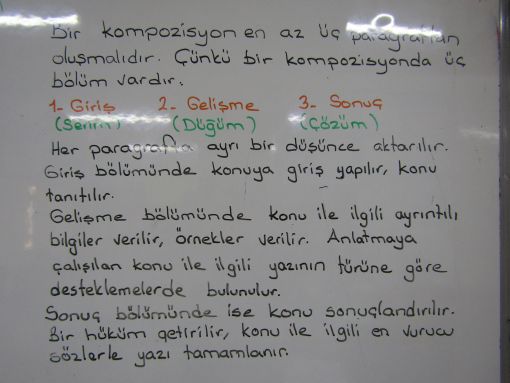 Bir kompozisyon en az üç paragraftan
oluşmalıdır. Çünkü bir kompozisyonda üç
bölüm vardır.
1- Giriş 2- Gelişme 3- Sonuç
(Serim) (Düğüm) (Çözüm)
Her paragrafta ayrı bir düşünce aktarılır.
Giriş bölümünde konuya giriş yapılır, konu
tanıtılır.
Gelişme bölümünde konu ile ilgili ayrıntılı
bilgiler verilir, örnekler verilir. Anlatmaya
çalışılan konu ile ilgili yazının türüne göre
desteklemelerde bulunulur.
Sonuç bölümünde ise konu sonuçlandırılır.
Bir hüküm getirilir, konu ile ilgili en vurucu
sözlerle yazı tamamlanır.